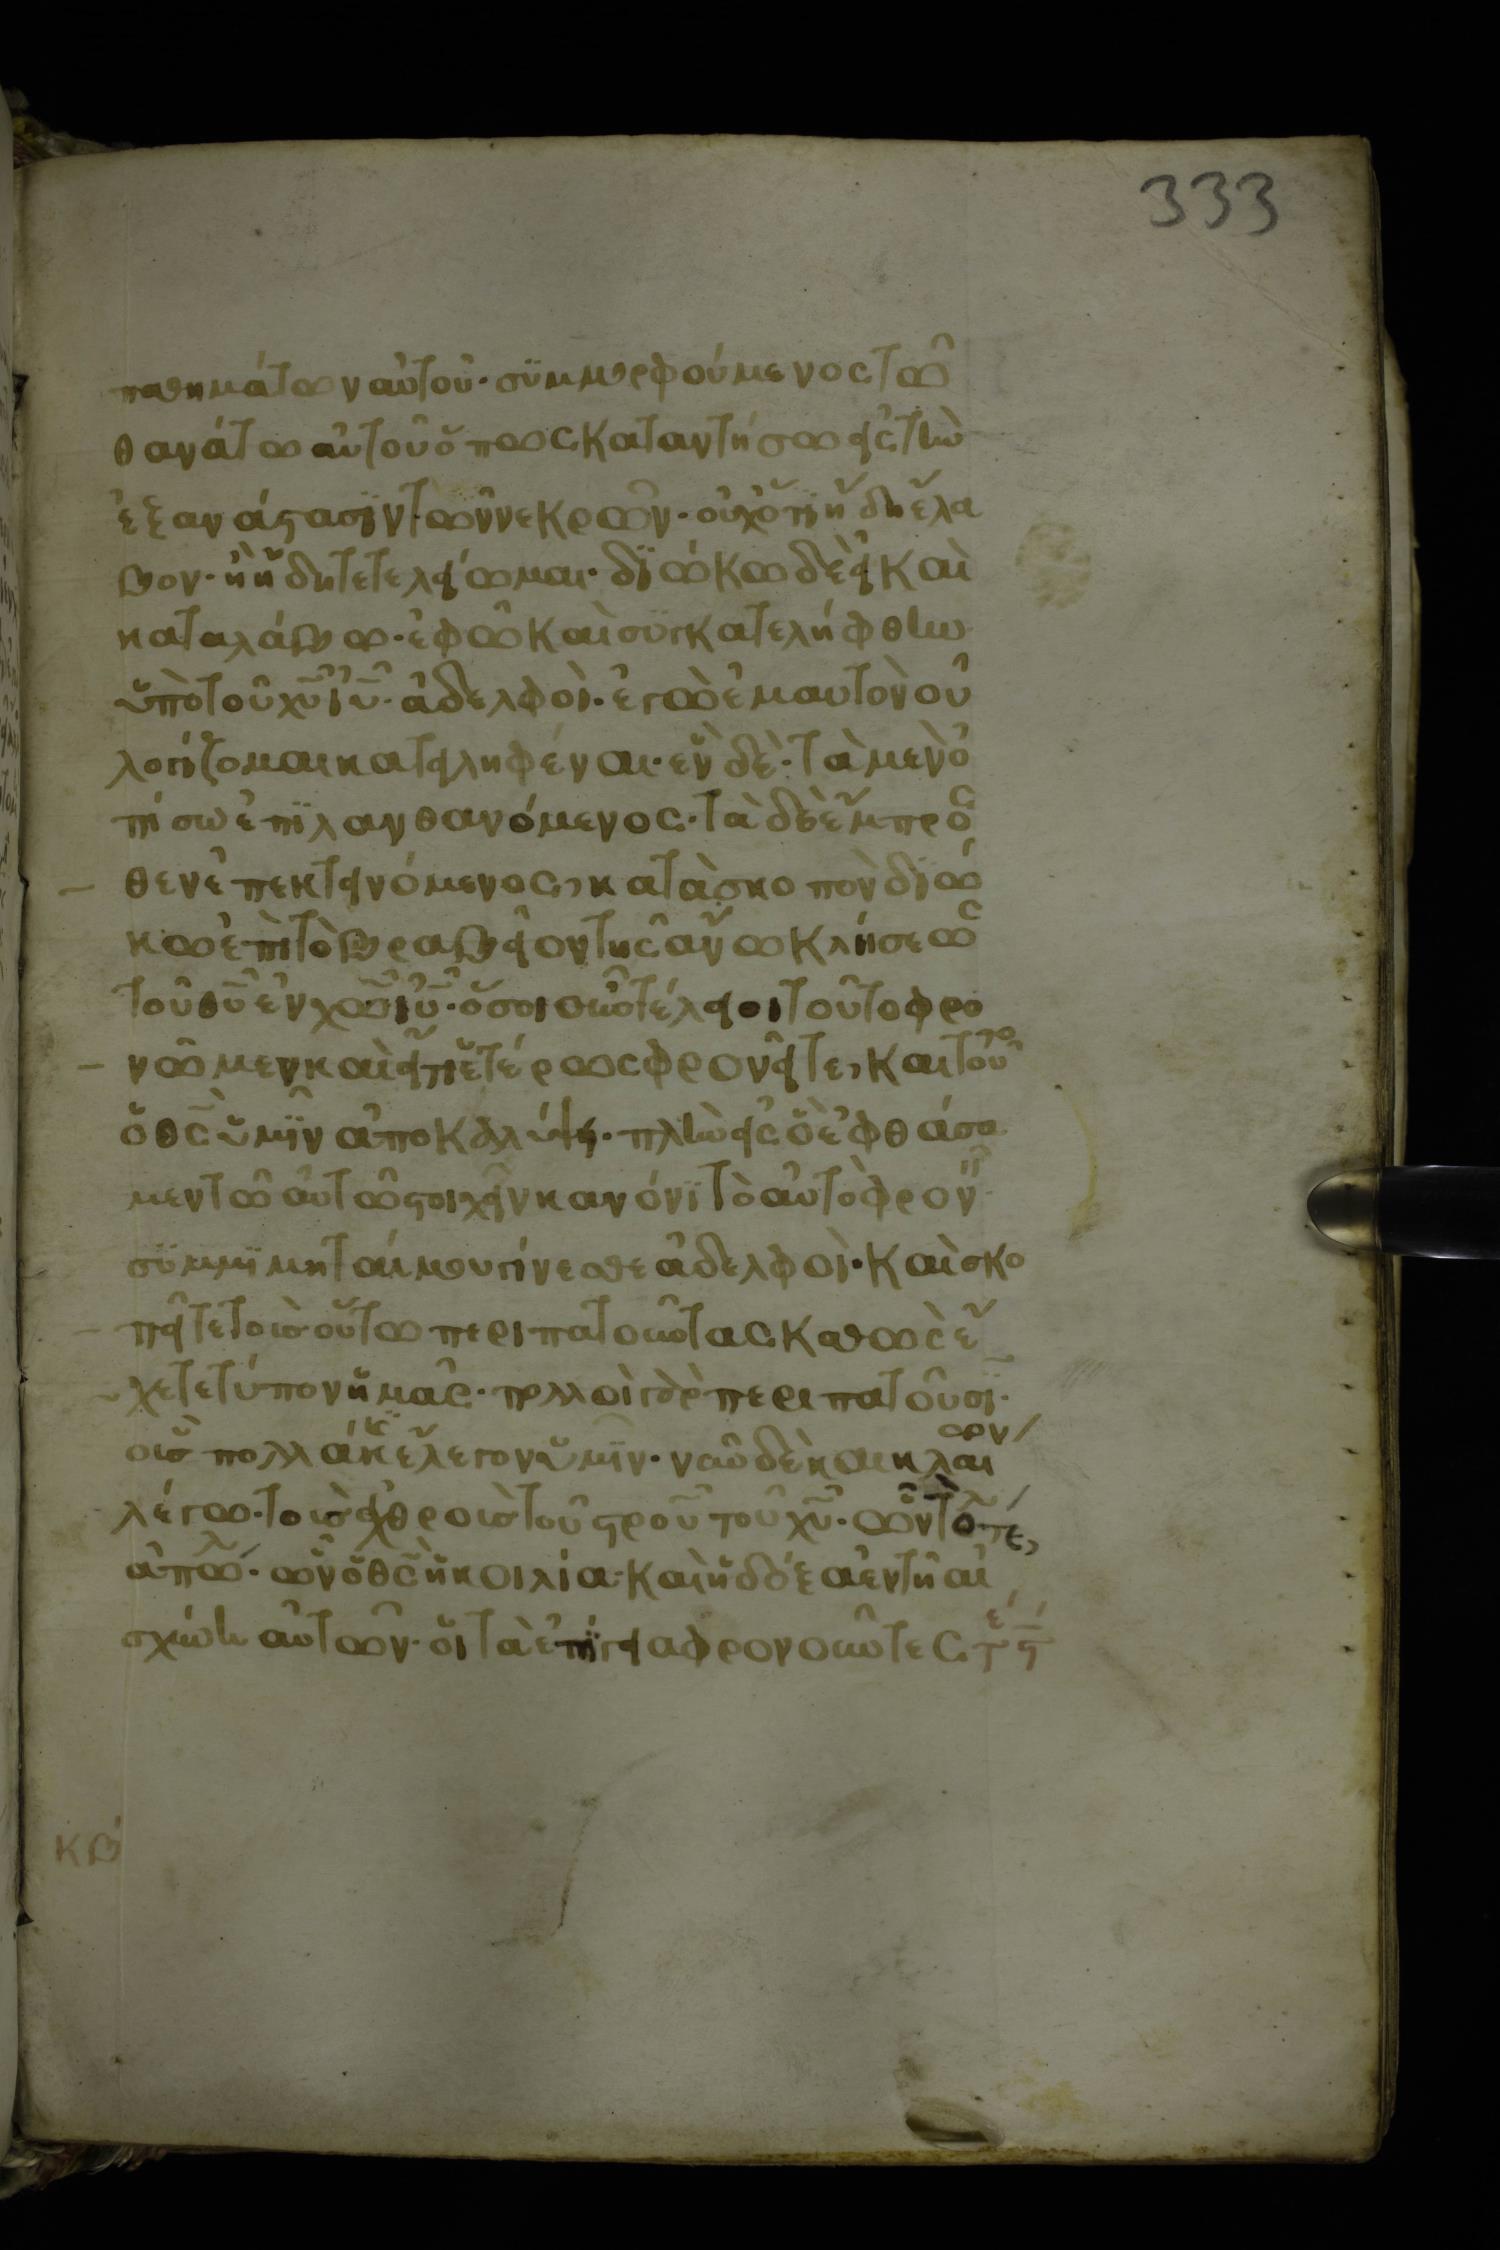 333
παθημάτων αὐτοῦ· συμμορφούμενος τῶ
θανάτω αὐτοῦ ὅπως καταντήσω εἰς τὴν
ἐξανάστασιν τῶν νεκρῶν· οὐχ ὅτι ἤδη ἔλα
βον· ἢ ἤδη τετελείωμαι· διώκω δὲ εἰ καὶ
καταλάβω· ἐφ ῶ καὶ συγκατελήφθην
ὑπὸ τοῦ χῦ ἰῦ· ἀδελφοὶ· ἐγὼ ἐμαυτὸν οὐ
λογίζομαι κατειληφέναι· ἓν δὲ· τὰ μὲν ὀ
πίσω ἐπιλανθανόμενος· τὰ δὲ ἔμπροσ
θεν ἐπεκτεινόμενος, κατὰ σκοπὸν διώ
κω ἐπὶ τὸ βραβεῖον τῆς ἄνω κλήσεως
τοῦ θῦ ἐν χῶ ἰῦ· ὅσοι οὖν τέλειοι τοῦτο φρο
νῶμεν καὶ εἴ τι ἑτέρως φρονεῖτε, καὶ τοῦτο
ὁ θς ὑμῖν ἀποκαλύψει· πλὴν εἰς ὃ ἐφθάσα
μεν τῶ αὐτῶ στοιχεῖν κανόνι τὸ αὐτὸ φρονεῖν
συμμιμηταί μου γίνεσθε ἀδελφοὶ· καὶ σκο
πεῖτε τοὺς οὕτω περιπατοῦντας καθὼς ἔ
χετε τύπον ἡμᾶς· πολλοὶ γὰρ περιπατοῦσι·
οὓς πολλάκις ἔλεγον ὑμῖν· νῦν δὲ καὶ κλαίων
λέγω· τοὺς ἐχθροὺς τοῦ στροῦ τοῦ χῦ· ὧν τὸ τέ
ἀπώλ· ὧν ὁ θς ἡ κοιλία· καὶ ἡ δόξα ἐν τῆ αἰ
σχύνη αὐτῶν· οἱ τὰ ἐπίγεια φρονοῦντες
κβ